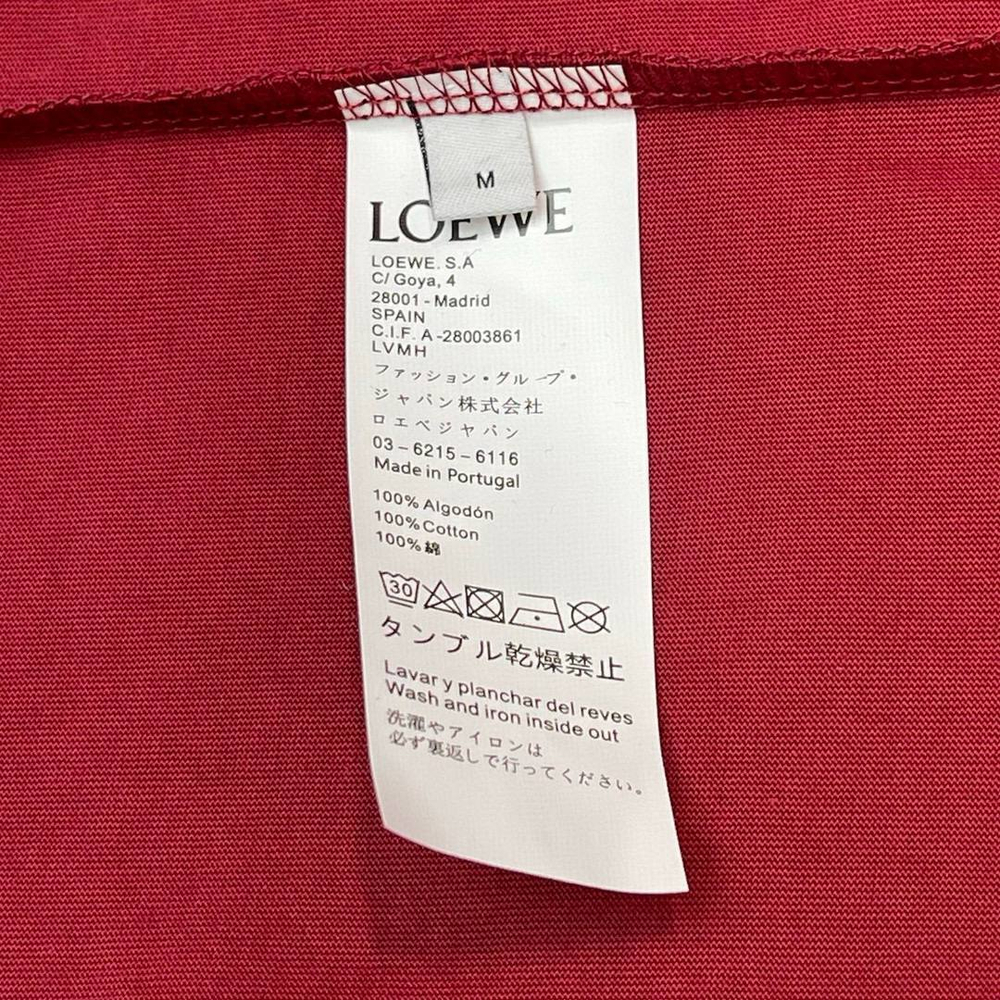 M
LOEWE
LOEWE. S.A
C/ Goya, 4
28001 - Madrid
SPAIN
C.I.F. A -28003861
LVMH
ファッション・グループ・
ジャパン株式会社
ロエベジャパン
03-6215-6116
Made in Portugal
100% Algodón
100% Cotton
100% 綿
30
タンブル乾燥禁止
Lavar y planchar del reves
Wash and iron inside out
洗濯やアイロンは
必ず裏返しで行ってください。